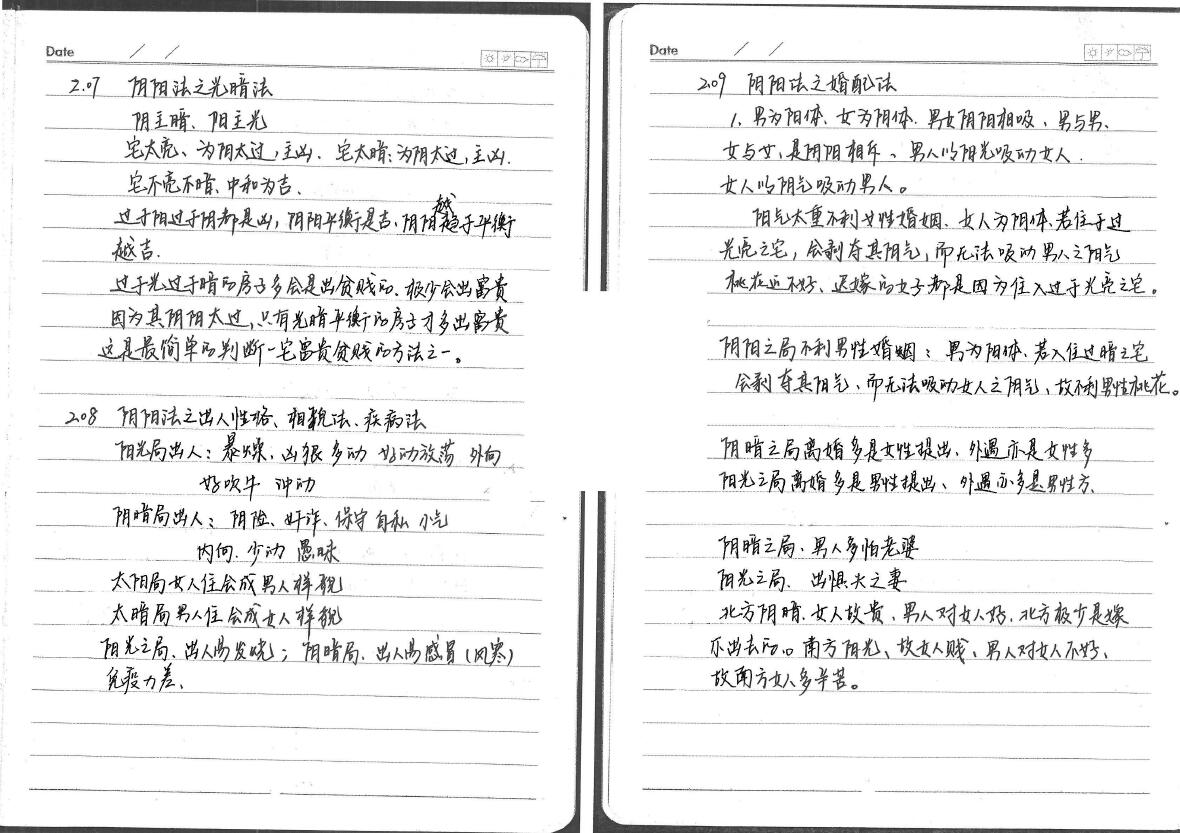 Date / /
2.07 阴阳法之光暗法
阴主暗、阳主光
宅太亮、为阴太过,主凶、宅太暗;为阴太过,主凶.
宅不亮不暗、中和为吉、
过于阳过于阴都是凶,阴阳平衡是吉、阴阳越趋于平衡
越吉.
过于光过于暗的房子多会是出贫贱的、很少会出富贵
因为其阴阳太过,只有光暗平衡的房子才多出富贵
这是最简单的判断一宅富贵贫贱的方法之一。
2.08 阴阳法之出人性格、相貌法、疾病法
阳光局出人:暴燥、凶狠 多动 好动放荡 外向
好吹牛 冲动
阴暗局出人:阴险、奸诈、保守 自私 小气
内向、少动 愚昧
太阳局女人住会成男人样貌
太暗局男人住会成女人样貌
阳光之局、出人易发烧;阴暗局、出人易感冒(风寒)
免疫力差、
Date / /
2.09 阴阳法之婚配法
1、男为阳体、女为阴体、男女阴阳相吸、男与男、
女与女、是阴阳相斥、男人以阳光吸动女人.
女人以阴气吸动男人。
阳气太重不利女性婚姻、女人为阴体、若住于过
光亮之宅,会剥夺其阴气,而无法吸动男人之阳气
桃花运不好、迟嫁的女子都是因为住入过于光亮之宅。
阴阳之局不利男性婚姻:男为阳体、若入住过暗之宅
会剥夺其阳气、而无法吸动女人之阴气,故不利男性桃花。
阴暗之局离婚多是女性提出、外遇亦是女性多
阳光之局离婚多是男性提出、外遇亦多是男性方、
阴暗之局、男人多怕老婆
阳光之局、出惧夫之妻
北方阴暗、女人故贵、男人对女人好、北方极少是嫁
不出去的。南方阳光、故女人贱、男人对女人不好、
故南方女人多辛苦。